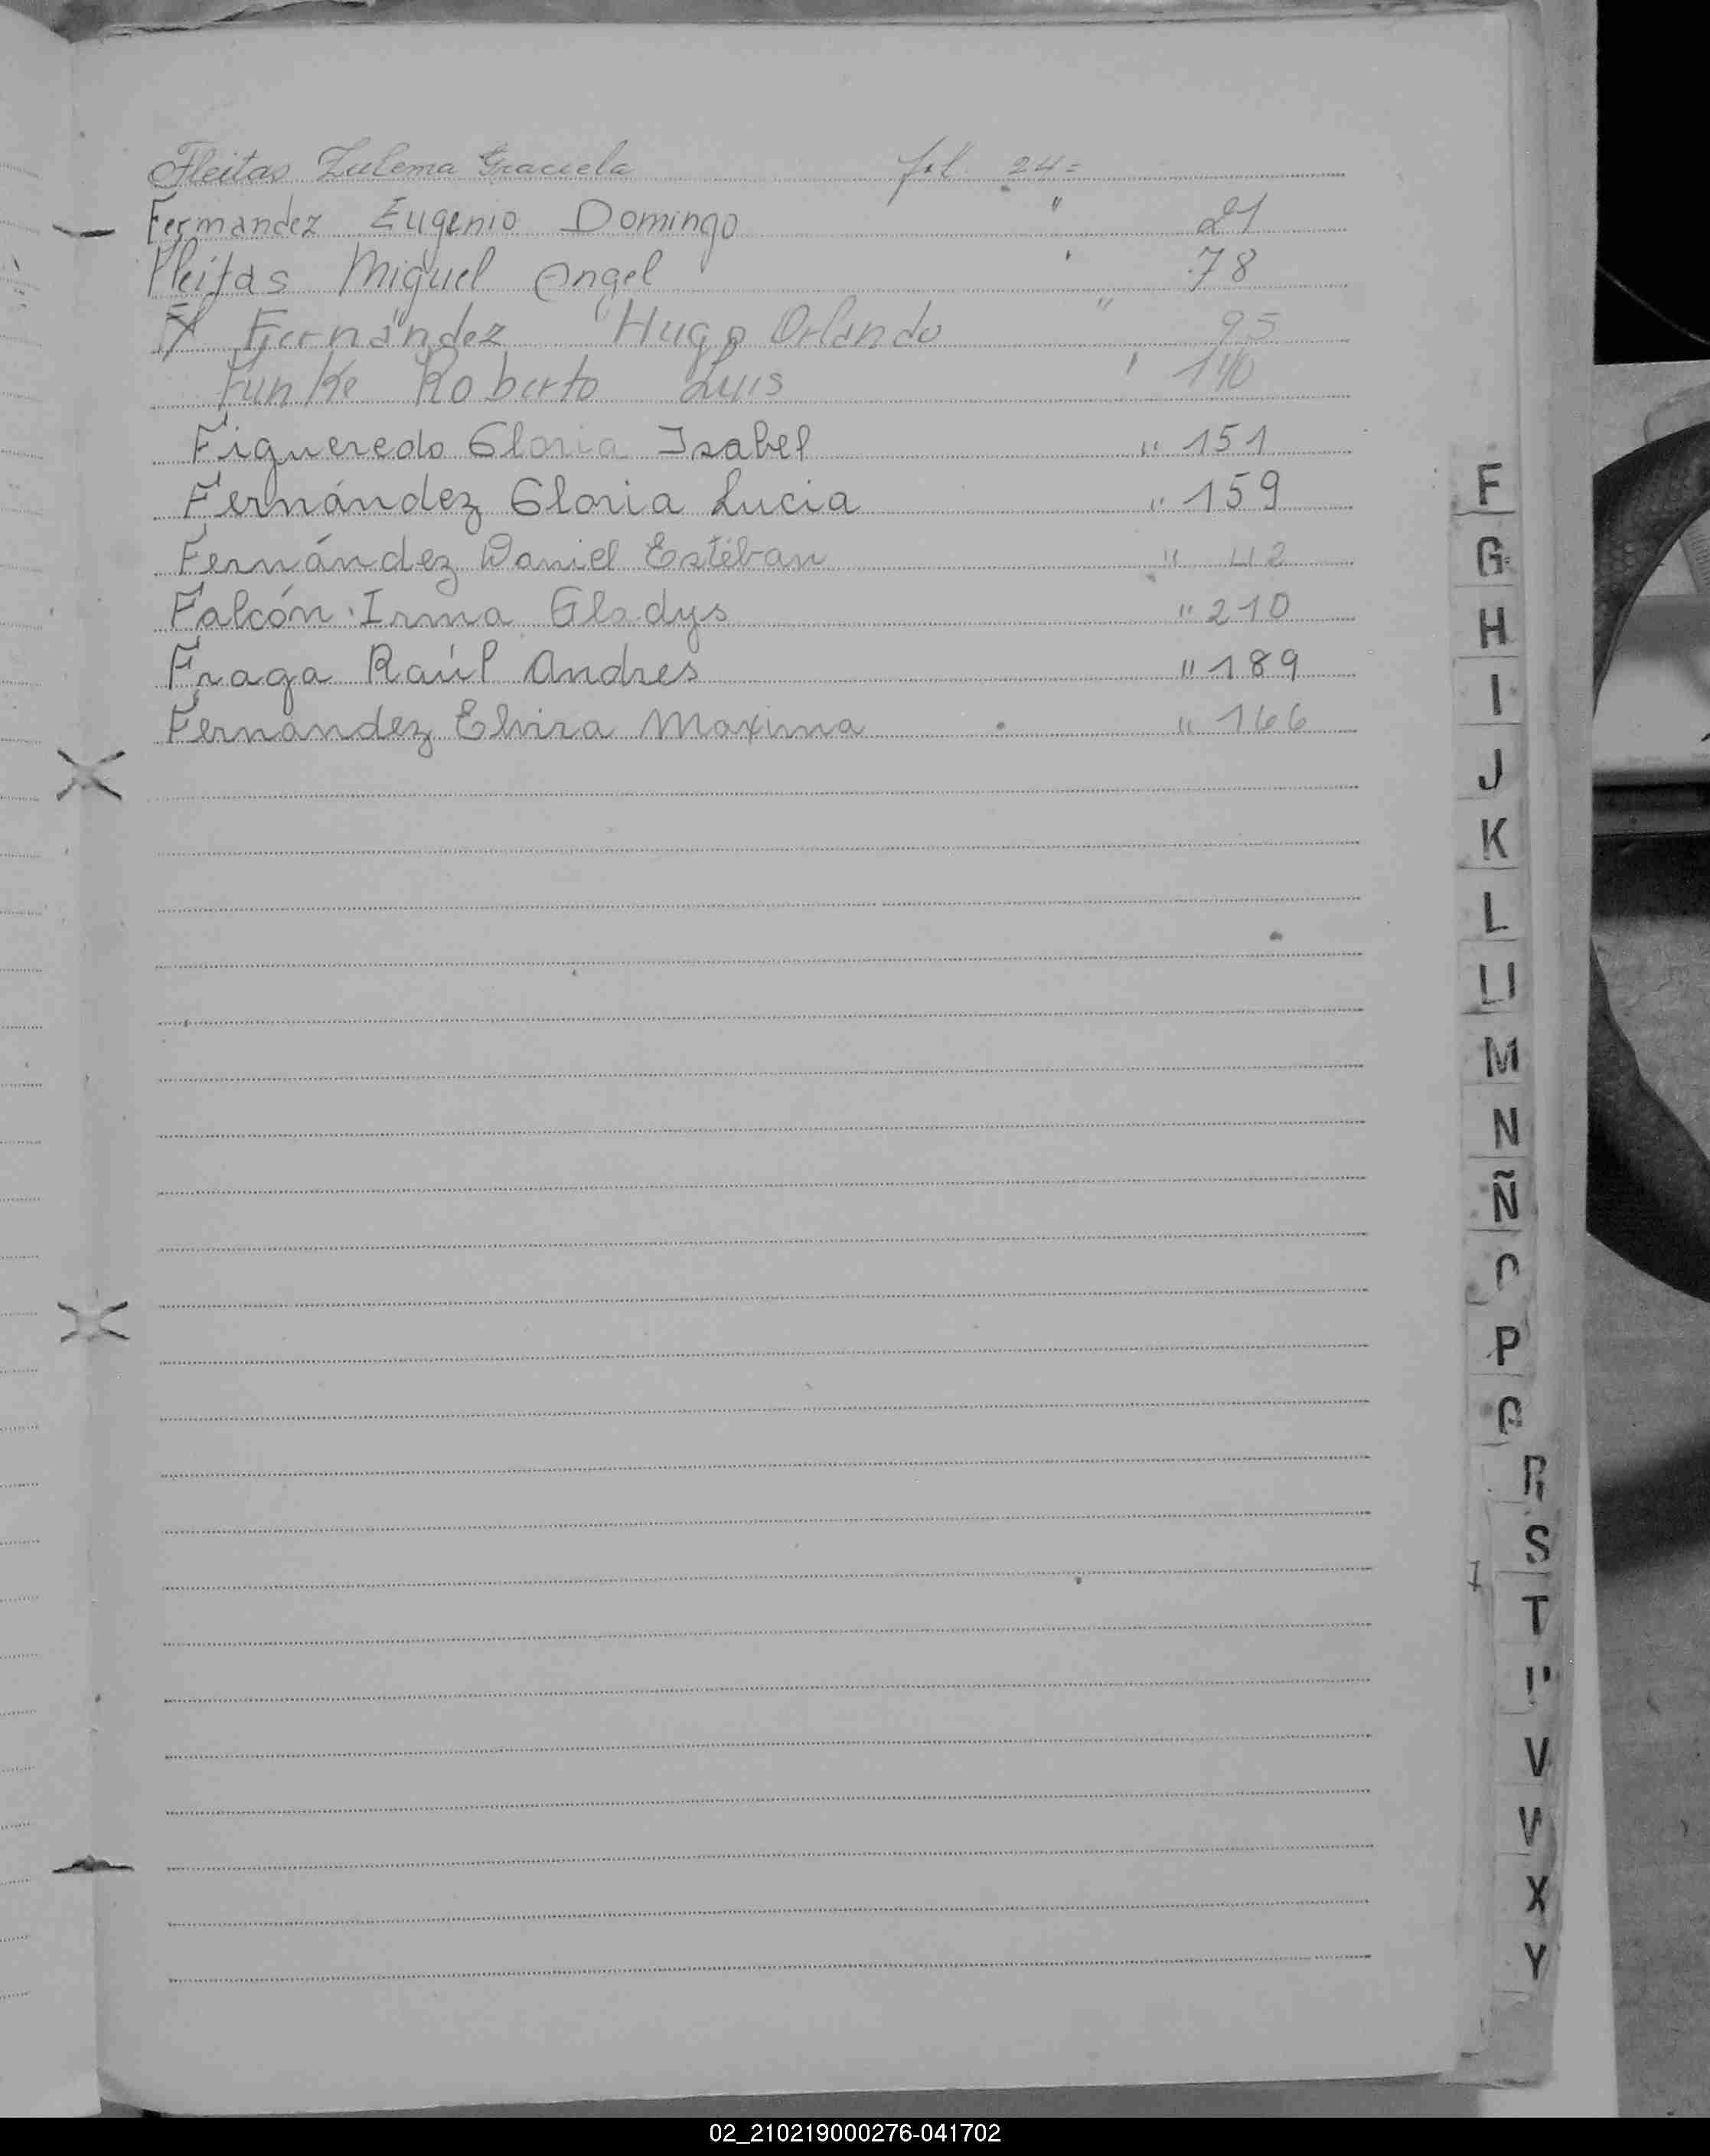 Fleitas Zulema Graciela fol. 24=
Fernandez Eugenio Domingo " 21
Fleitas Miguel Angel ' 78
Fernández Hugo Orlando " 95
Funke Roberto Luis ' 140
Figueredo Gloria Isabel " 151
Fernández Gloria Lucia " 159
Fernández Daniel Estéban " 42
Falcón Irma Gladys " 210
Fraga Raúl Andres " 189
Fernández Elvira Maxima " 166
F
G
H
I
J
K
L
M
N
Ñ
P
R
S
T
V
X
Y
02_210219000276-041702